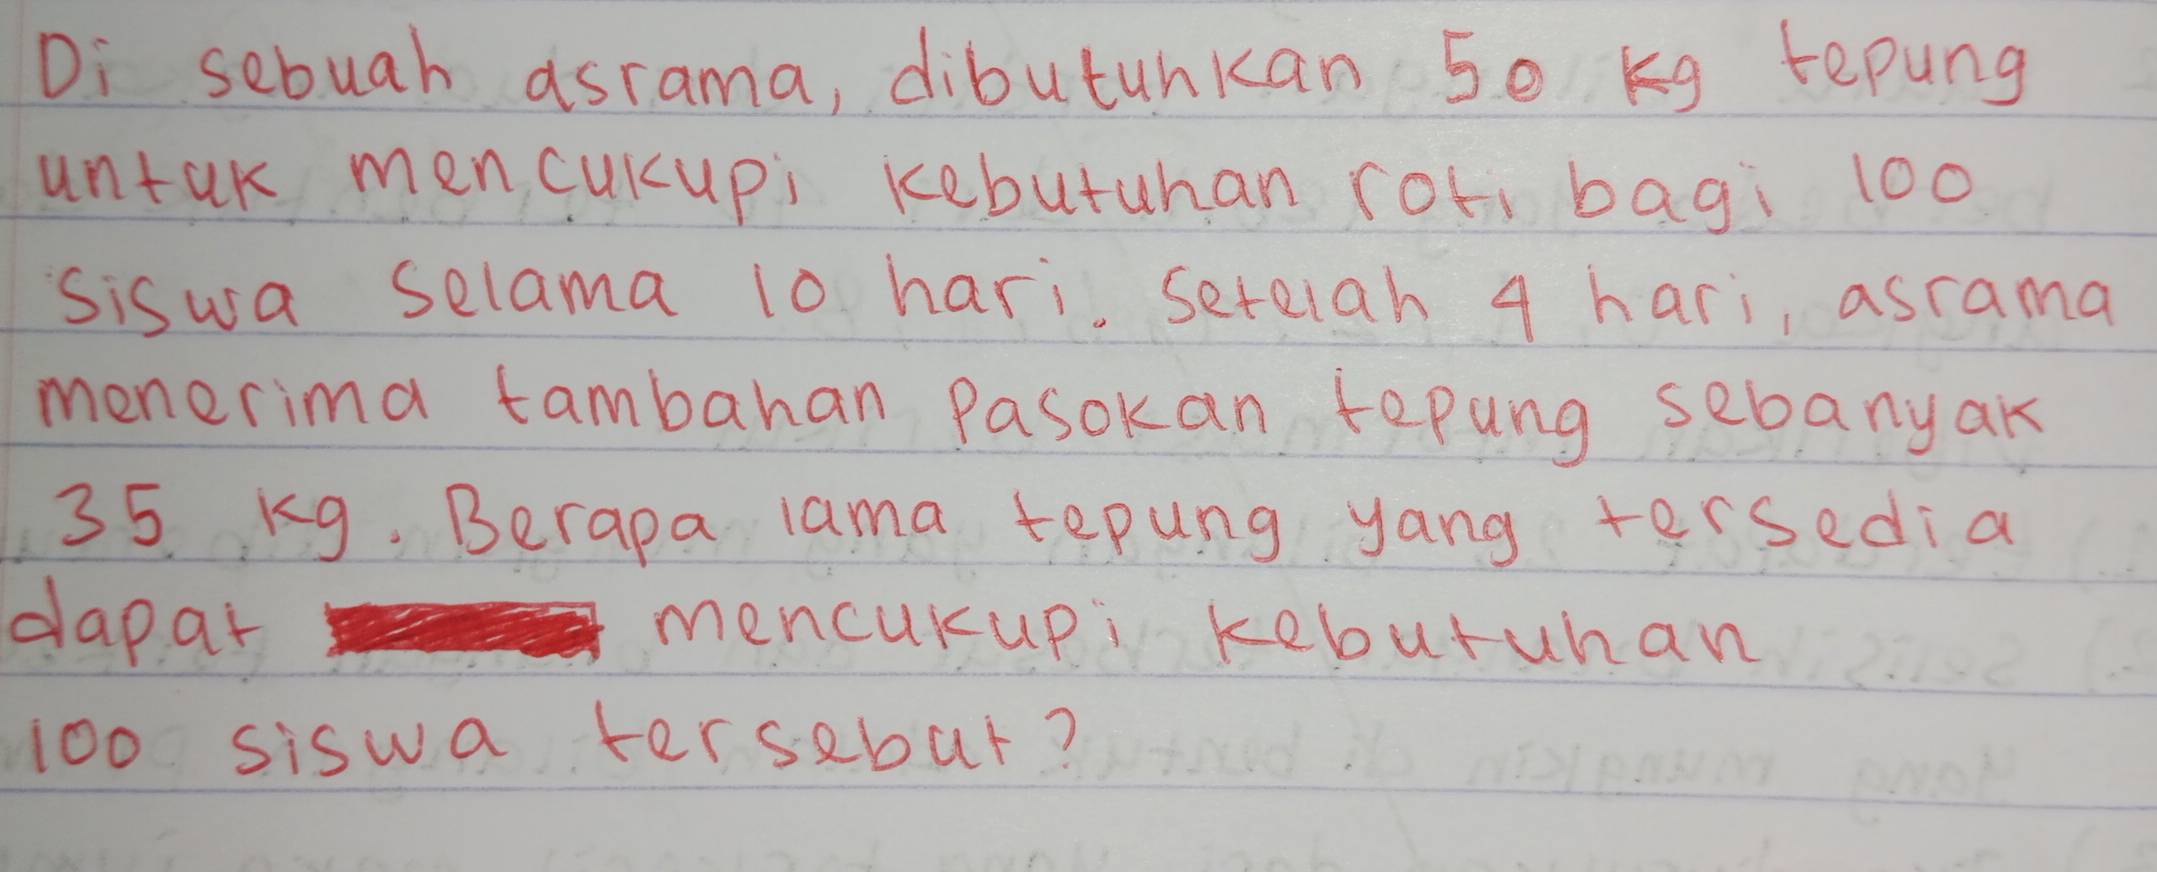 Di sebuah asrama, dibutuhkan 50 kg tepung
untuk mencukupi kebutuhan roti bagi 100
siswa selama 10 hari. Setelah 4 hari, asrama
menerima tambahan pasokan tepung sebanyak
35 kg. Berapa lama tepung yang tersedia
dapat mencukupi kebutuhan
100 siswa tersebut?